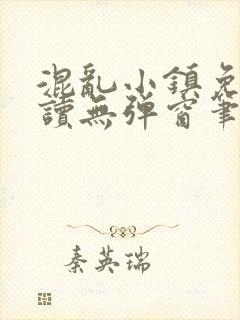 混亂小鎮免
讀無彈窗筆
秦英瑞